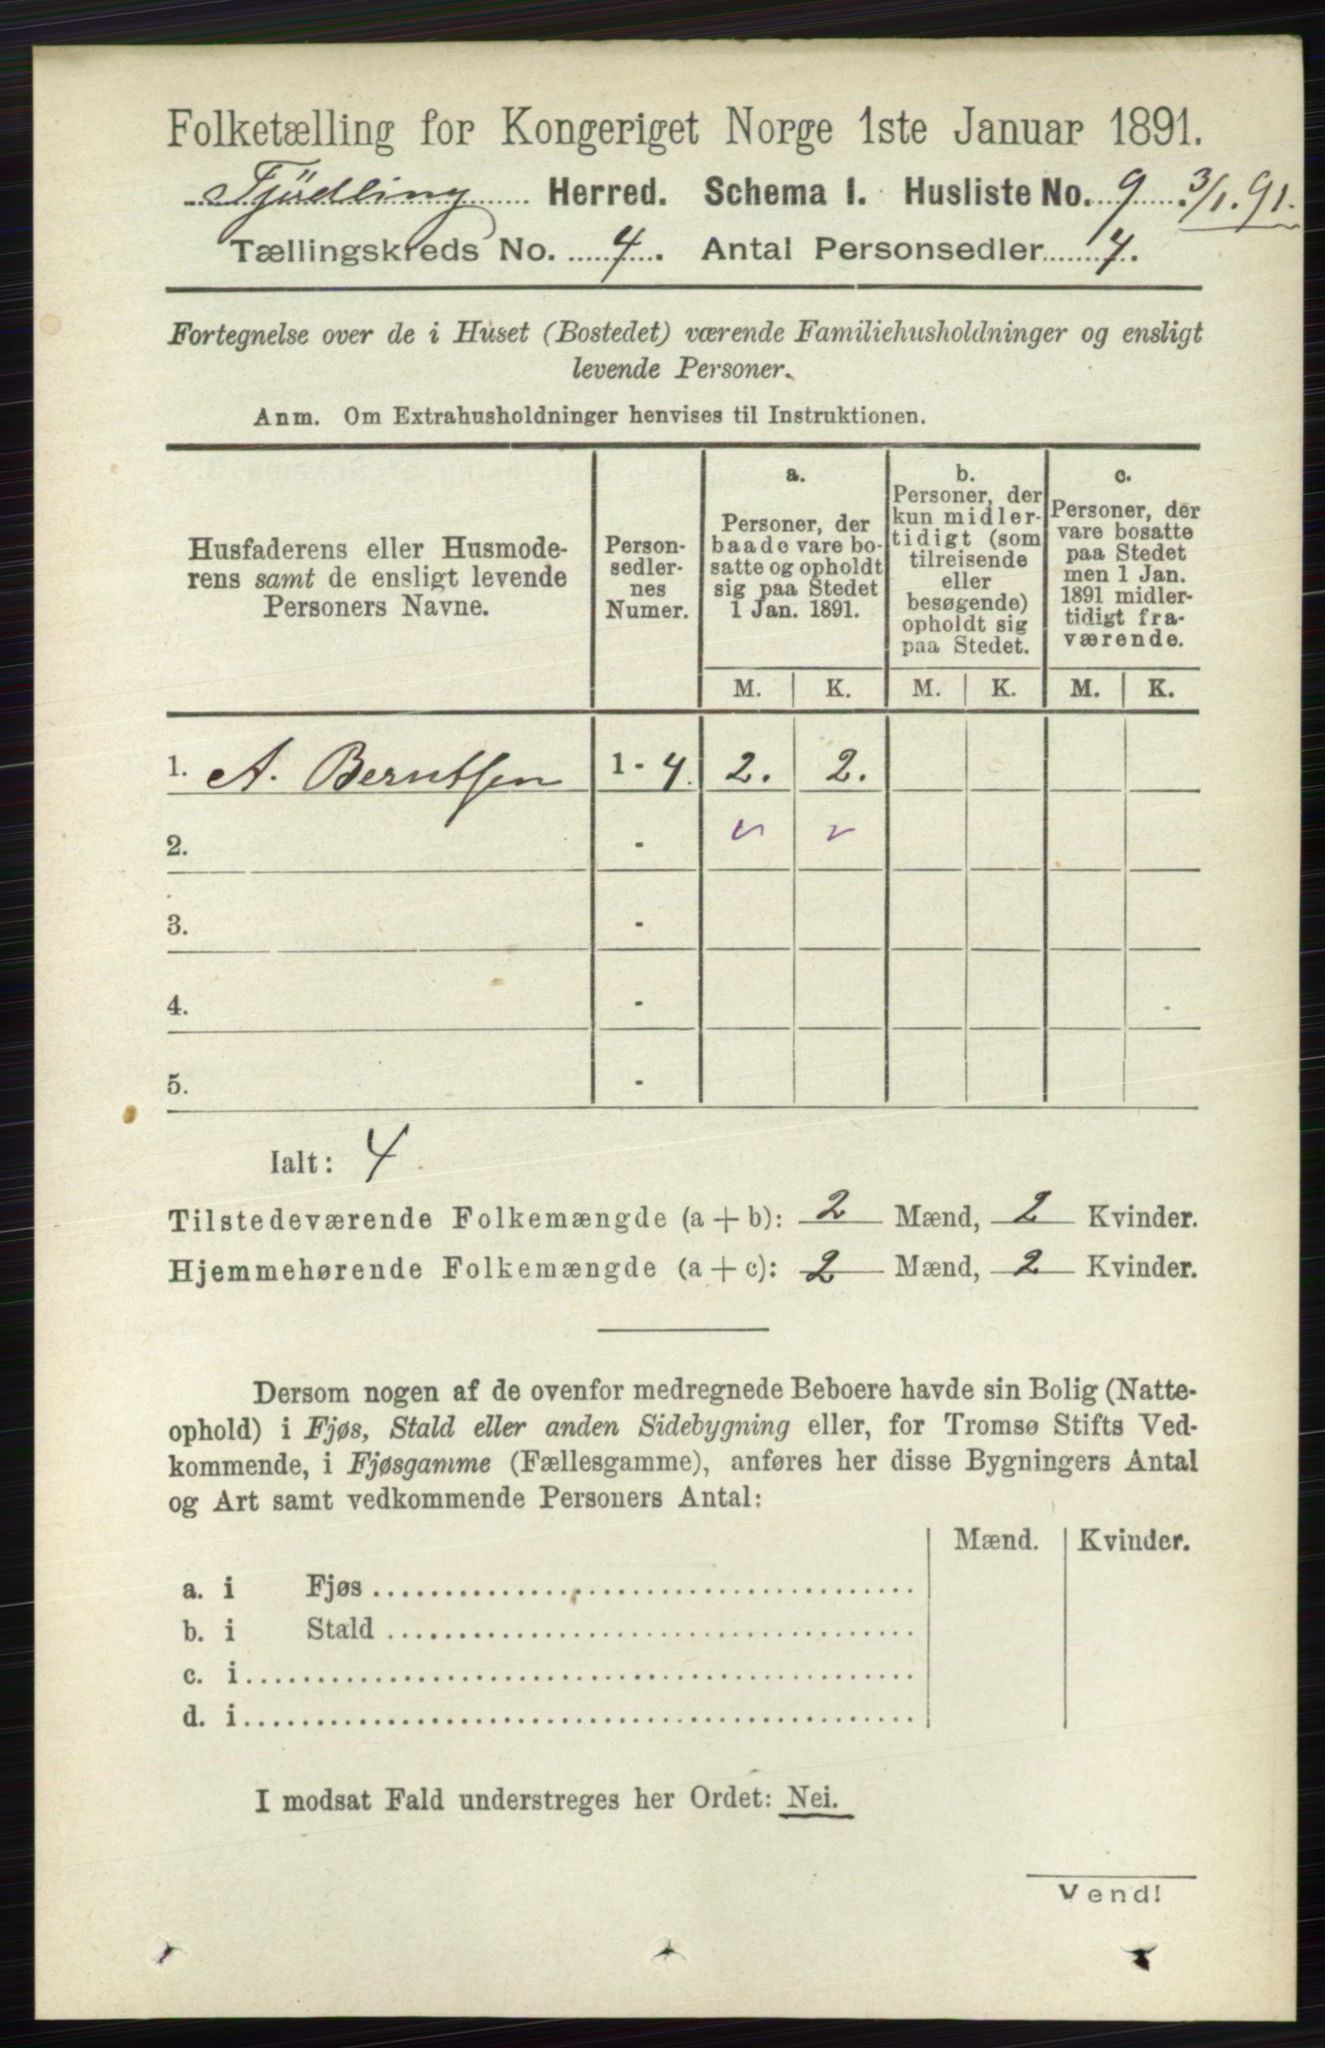 Folketælling for Kongeriget Norge 1ste Januar 1891.
Tjødling Herred. Schema I. Husliste No. 9 3/1.91.
Tællingskreds No. 4. Antal Personsedler 4.
Fortegnelse over de i Huset (Bostedet) værende Familiehusholdninger og ensligt
levende Personer.
Anm. Om Extrahusholdninger henvises til Instruktionen.
Husfaderens eller Husmode-
rens samt de ensligt levende
Personers Navne.
Person-
sedler-
nes
Numer.
a.
Personer, der
baade vare bo-
satte og opholdt
sig paa Stedet
1 Jan. 1891.
b.
Personer, der
kun midler-
tidigt (som
tilreisende
eller
besøgende)
opholdt sig
paa Stedet.
c.
Personer, der
vare bosatte
paa Stedet
men 1 Jan.
1891 midler-
tidigt fra-
værende.
M. K. M. K. M. K.
1. A. Berntsen 1 - 4. 2. 2.
2. -
3. -
4. -
5. -
Ialt: 4
Tilstedeværende Folkemængde (a + b): 2 Mænd, 2 Kvinder.
Hjemmehørende Folkemængde (a + c): 2 Mænd, 2 Kvinder.
Dersom nogen af de ovenfor medregnede Beboere havde sin Bolig (Natte-
ophold) i Fjøs, Stald eller anden Sidebygning eller, for Tromsø Stifts Ved-
kommende, i Fjøsgamme (Fællesgamme), anføres her disse Bygningers Antal
og Art samt vedkommende Personers Antal:
Mænd. Kvinder.
a. i Fjøs
b. i Stald
c. i
d. i
I modsat Fald understreges her Ordet: Nei.
Vend!